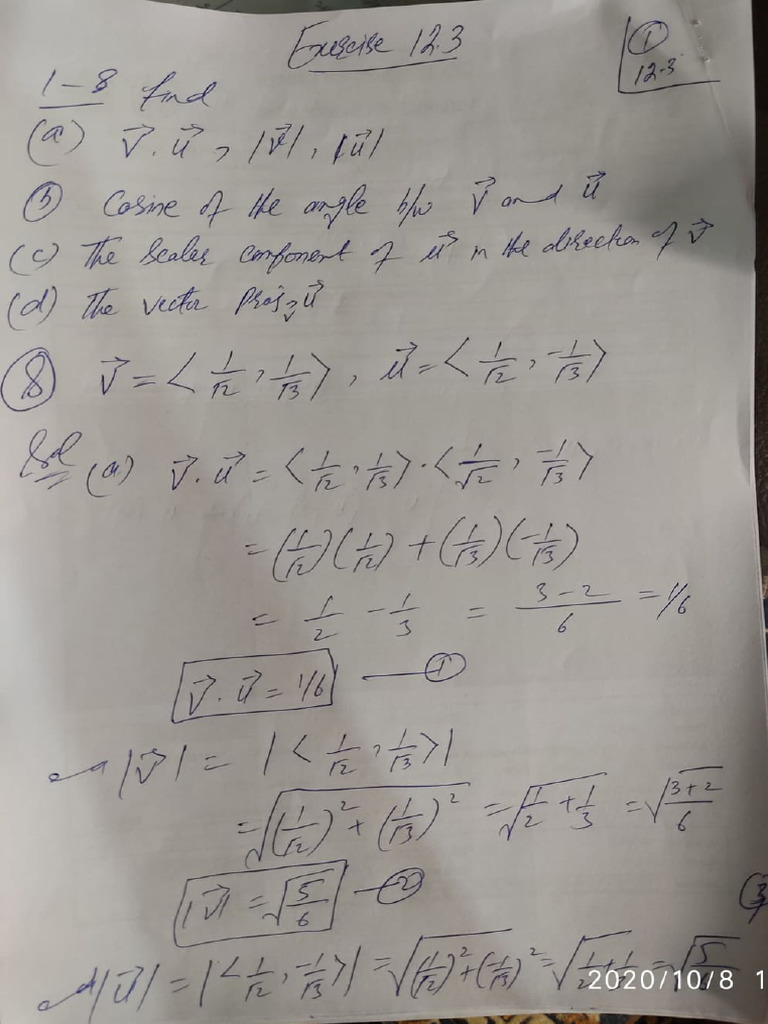 Exercise 12.3
① 12.3
1-8 find
(a) v⃗.u⃗, |v⃗|, |u⃗|
ⓑ Cosine of the angle b/w v⃗ and u⃗
(c) The Scaler component of u⃗ in the direction of v⃗
(d) The vector Proj_v⃗ u⃗
⑧ v⃗ = <1/√2, 1/√3>, u⃗ = <1/√2, -1/√3>
Sol (a) v⃗.u⃗ = <1/√2, 1/√3>.<1/√2, -1/√3>
= (1/√2)(1/√2) + (1/√3)(-1/√3)
= 1/2 - 1/3 = (3-2)/6 = 1/6
v⃗.u⃗ = 1/6 — ①
|v⃗| = |<1/√2, 1/√3>|
= √((1/√2)² + (1/√3)²) = √(1/2 + 1/3) = √((3+2)/6)
|v⃗| = √(5/6) — ②
③
|u⃗| = |<1/√2, -1/√3>| = √((1/√2)² + (-1/√3)²) = √(1/2 + 1/3) = √(5/6)
2020/10/8 1